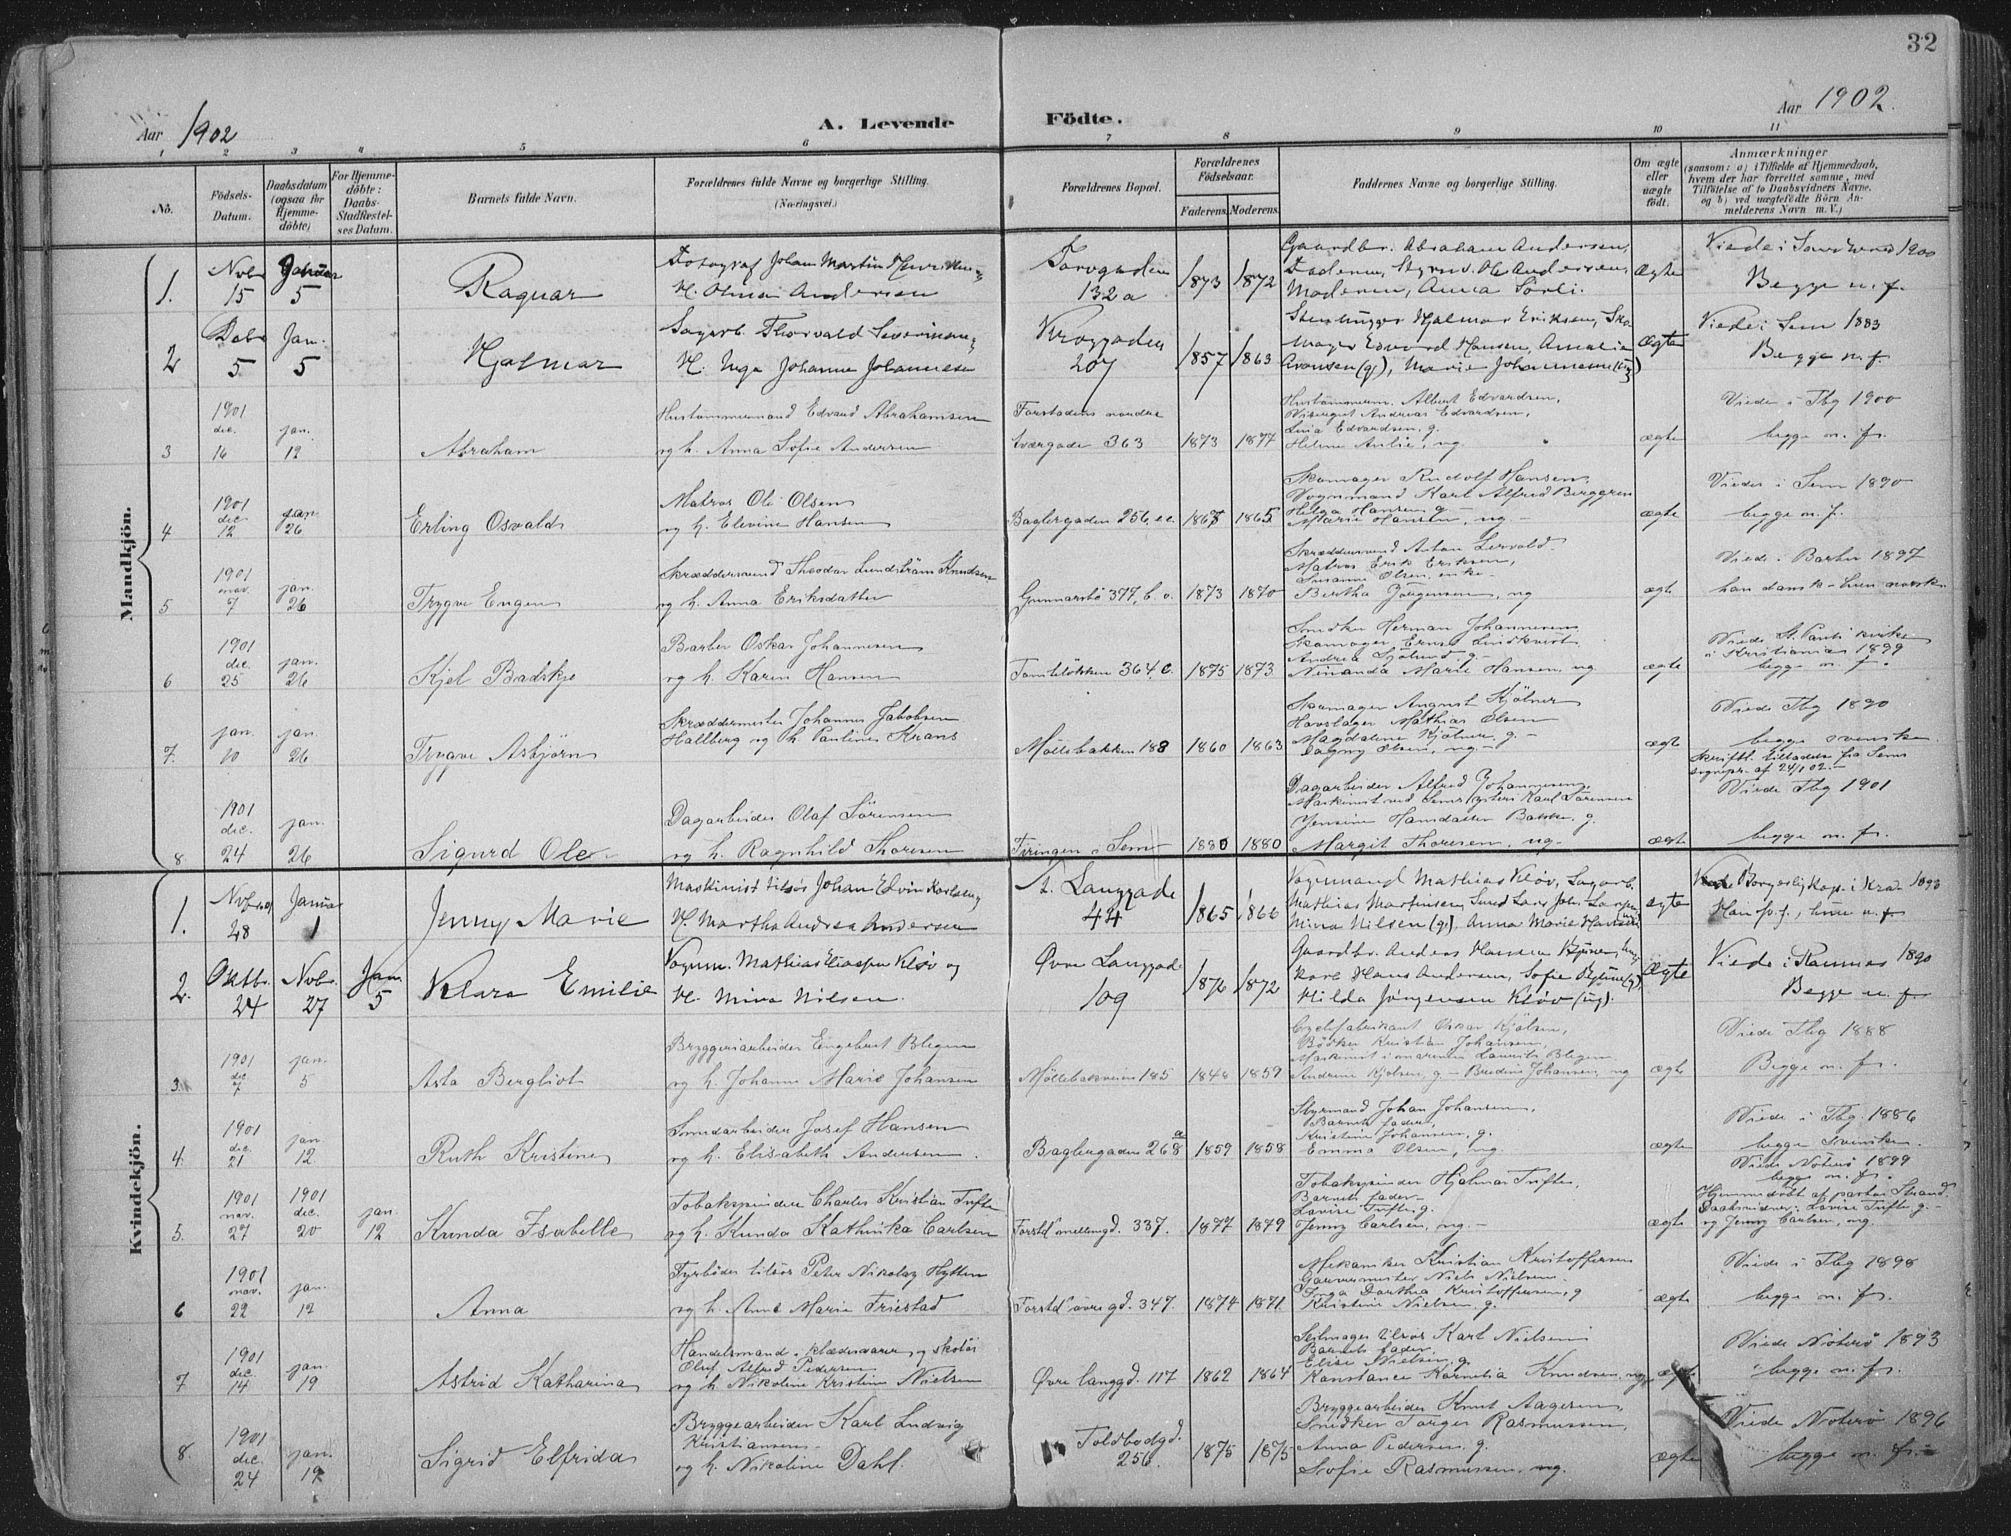 32
Aar 1902
A. Levende
Födte.
Aar 1902.
1 2 3 4 5 6 7 8 9 10 11
No.
Födsels-
Datum.
Daabsdatum
(ogsaa for
Hjemme-
döbte)
For Hjemme-
döbte:
Daabs-
Stadfæstel-
ses Datum.
Barnets fulde Navn.
Forældrenes fulde Navne og borgerlige Stilling.
(Næringsvei.)
Forældrenes Bopæl.
Forældrenes
Födselsaar.
Faderens. Moderens.
Faddernes Navne og borgerlige Stilling.
Om ægte
eller
uægte
födt.
Anmærkninger
(saasom: a) i Tilfælde af Hjemmedaab,
hvem der har forrettet samme, med
Tilföielse af to Daabsvidners Navne,
og b) ved uægtefödte Börn An-
melderens Navn m. V.)
Mandkjön.
1. Novbr 15 Januar 5
Ragnar
Fotograf Johan Martin Henriksen
H. Olma Andersen
Torvgaden
132a
1873 1872
Gaardbr. Abraham Andersen,
Faderen, Styrm. Ole Andersen,
Moderen, Anna Sörli.
Ægte
1900
Begge n. f.
2 Debr 5 Jan. 5
Hjalmar
Sagarb. Thorvald Severinsen
H. Inga Johanne Johannesen
Kroggaden
207
1857 1863
Stenhugger Hjalmar Eriksen, Sko-
mager Edvard Hansen, Amalie
Aronsen (g), Marie Johannesen (ug)
Ægte
Viede i Sem 1883
Begge n. f.
3 1901 dec. 16 jan. 12
Abraham
Hustømmermand Edvard Abrahamsen
og h. Anna Sofie Andersen
Forstadens nordre
tværgade 363
1873 1877
Hustømmerm. Albert Edvardsen,
Visergut Andreas Edvardsen,
Lina Edvardsen, g.
Helene Anlie, ug
ægte
Viede i Tbg 1900
begge n. f.
4 1901 dec. 12 jan. 26
Erling Osvald
Matros Ole Olsen
og h. Elevine Hansen
Baglergaden 256, e.e.
1867 1865
Skomager Rudolf Hansen
Vognmand Karl Alfred Berggren
Helga Hansen g -
Marie Hansen, ug -
ægte
Viede i Sem 1890
begge n. f.
5 1901 nov. 7 jan. 26
Trygve Engen
Skræddersvend Theodor Lundström Knudsen
og h. Anna Eriksdatter
Gunnarsbö 377, b. o.
1873 1870
Skræddersvend Anton Lervold
Matros Erik Eriksen,
Susanne Olsen, enke -
Bertha Jörgensen, ug
ægte
Viede i Barbu 1897
han dansk - hun norsk
6 1901 dec. 25 jan. 26
Kjel Badskje
Barber Oskar Johannesen
og h. Karen Hansen
Tomtelökken 364, c.
1875 1873
Snedker Herman Johannesen
Skomager Ernst Lindkvist
Andrea Sjölund g -
Ninanda Marie Hansen, ug
ægte
Viede St. Pauli kirke
i Kristiania 1899
begge n. f.
7. jan. 10 jan. 26
Trygve Asbjörn
Skræddermester Johannes Jakobsen
Hallberg og h. Pauline Krans
Möllebakken 188
1860 1863
Skomager August Kjölner
Hovslager Mathias Olsen
Magdalene Kjölner, g. -
Dagny Olsen, ug. -
ægte
Viede Tbg 1890
begge svenske.
Skriftl. tilladelse fra Sems
sognepr. af 24/1 02. -
8 1901 dec. 24 jan. 26
Sigurd Ole
Dagarbeider Olaf Sörensen
og h. Ragnhild Thoresen
Tiringen i Sem
1880 1880
Dagarbeider Alfred Johannesen,
Maskinist ved Sems Karl Sörensen
Jensine Hansdatter Bakke, g.
Margit Thoresen, ug -
ægte
Viede Tbg 1901
begge n. f.
Kvindekjön.
1. Novbr 28 Januar 1
Jenny Marie
Maskinist tilsös Johan Edvin Karlsen
H. Martha Andrea Andersen
N. Langgade
44
1865 1866
Vognmand Mathias Klöv, Sagarb.
Mathias Martinsen, Svend Lars Joh. Larsen
Mina Nilsen (g), Anna Marie Hansen
ægte
Borgerlig Kop. i Kra 1893
Han sp. f., hun n. f.
2. Oktbr. 24 Novbr. 27 Jan. 5
Klara Emilie
Vognm. Mathias Eliassen Klöv og
H. Mina Nilsen.
Øvre Langgade
109
1876 1872
Gaardbr. Anders Hansen Bjune, ung-
karl Hans Andersen, Sofie Bjune (g)
Hilda Jörgensen Klöv (ug).
Ægte
Viede i Ramnes 1890
Begge n. f.
3. 1901 dec 7 jan. 5
Asta Bergliot
Bryggeriarbeider Engebret Blegen
og h. Johanne Marie Johansen
Möllebakveien 185
1848 1859
Cyclefabrikant Oskar Kjölsen,
Bödker Kristian Johansen,
Maskinist i marinen Laurits Blegen
Andrine Kjölsen, g - Bredine Johansen, ug
ægte
Viede Tbg 1888
Begge n. f.
4. 1901 dec. 21 jan 12
Ruth Kristine
Smedarbeider Josef Hansen
og h. Elisabeth Andersen.
Baglergaden 268 a
1859 1858
Styrmand Johan Johansen,
Barnets fader,
Kristine Johansen, g.
Emma Olsen, ug.
ægte
Viede i Tbg. 1886
begge Svenske.
5. 1901 nov. 27 1901 dec. 20 jan. 12
Kunda Isabelle
Tobakspinder Charles Kristian Tufte
og h. Kunda Kathinka Carlsen
Forstd mellemgd. 337.
1877 1879
Tobakspinder Hjalmar Tufte,
Barnets fader -
Lovise Tufte, g.
Jenny Carlsen, ug. -
ægte
Viede Nøterø 1899
begge n. f.
Hjemmedöbt af pastor Strand.
Daabsvidner: Lovise Tufte, g. -
og Jenny Carlsen, ug.
6 1901 nov. 22 jan. 12
Anna
Fyrböder tilsös Peter Nikolay Hytten
og h. Anne Marie Friestad
Forstd övregd. 347.
1874 1871
Mekaniker Kristian Kristoffersen
Garvermester Niels Nielsen.
Inga Dorthea Kristoffersen, g
Kristine Nielsen, g.
ægte
Viede i Tbg 1898
begge n. f.
7 1901 dec. 14 jan. 19
Astrid Katharina
Handelsmand i klædesvarer og skotöi
Oluf Alfred Pedersen
og h. Nikoline Kristine Nielsen
Øvre langgd. 117
1862 1864
Seilmager tilsös Karl Nielsen
Barnets fader.
Elise Nielsen, g.
Konstance Kornelia Knudsen, ug.
ægte
Viede Nøterø 1893
begge n. f.
8. 1901 dec. 24 jan. 19
Sigrid Elfrida
Bryggearbeider Karl Ludvig
Kristiansen
og h. Nikoline Dahl.
Toldbodgd.
256.
1875 1875
Bryggearbeider Knut Aagesen,
Snedker Torger Rasmussen,
Anna Pedersen, g.
Sofie Rasmussen, ug.
ægte
Viede Nøterø 1896
begge n. f.